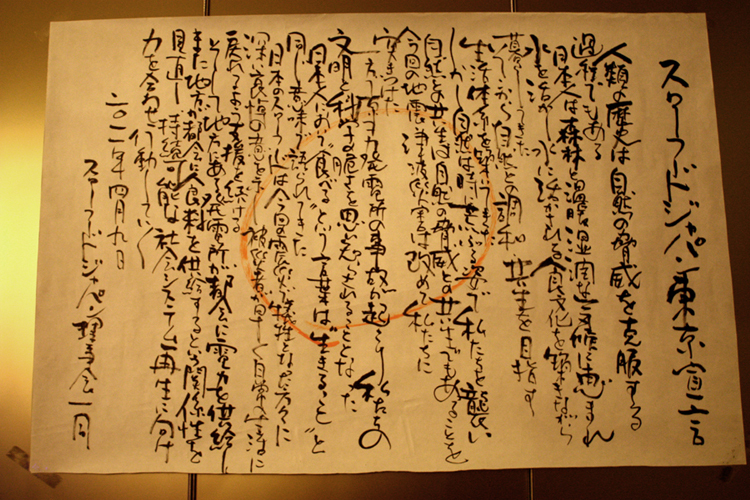 スローフードジャパン東京宣言
人類の歴史は自然の脅威を克服する
過程でもある
日本人は森林と温暖湿潤な気候に恵まれ
水を活かし水に活かされる食文化を築きながら
暮らしてきた
だから自然との調和 共生を目指す
生活体系を築いてきた
しかし自然は時に荒ぶる姿で私たちを襲い
自然との共生は自然の脅威との共生でもあることを
今回の地震 津波災害は改めて私たちに
突きつけた
原子力発電所の事故が起こり私たちの
文明と科学の脆さを思い知らされることとなった
日本人において「食べる」という言葉は「生きること」と
同じ意味で語られてきた
日本のスローフードは今回の震災で犠牲になった方々に
深い哀悼の意を表し 被災者が早く日常の生活に
戻れるよう支援を続ける
そして地方にある発電所が都会に電力を供給し
また地方が都会に食料を供給するという関係性を
見直し 持続可能な社会システム再生に向け
力を合わせ行動していく
二〇一一年四月九日
スローフードジャパン理事会一同